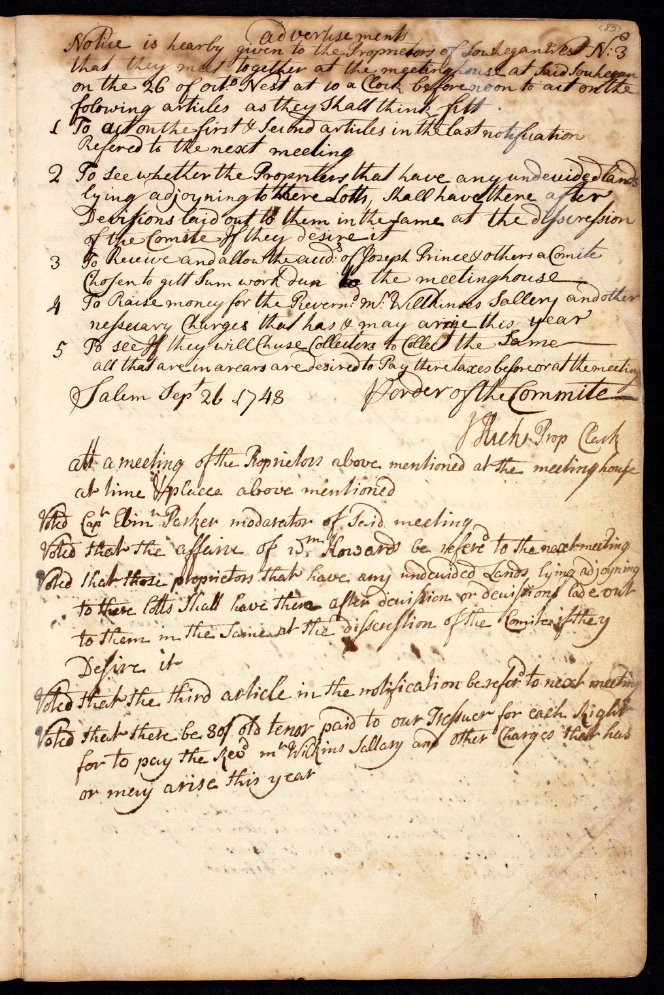 (85)
advertisement
Notice is hearby given to the Proprietors of Souhegan West N: 3
that they meet together at the meetinghouse at Said Souhegan
on the 26 of octo. Next at 10 a Clock before noon to act on the
folowing articles as they Shall think fitt
1 To act on the first & Second articles in the last notification
Refered to the next meeting
2 To see whether the Proprieters that have any undevided lands
lying adjoyning to there Lotts, Shall have there after
Devisions laid out to them in the same at the disscression
of the Comite If they desire it
3 To Receive and allow the accds. of Joseph Prince & others a Comite
Chosen to gitt Sum work dun to the meetinghouse
4 To Raise money for the Revernd. Mr. Willkinses Sallery and other
nessecary Charges that has & may arrise this year
5 To see If they will Chuse Collecters to Collect the Same
all that are in arears are desired to Pay there taxes before or at the meeting
Salem Sept 26 1748 P order of the Commite
Hicks Prop Clark
att a meeting of the Proprietors above mentioned at the meeting house
at time & placce above mentioned
Voted Capt Ebinr Parker modarator of Said meeting
Voted that the affaire of Wm Howards be refered to the next meeting
Voted that those proprietors that have any undevided Lands lying adjoyning
to there lotts Shall have there after devission or devissions lade out
to them in the Same at the disscrestion of the Comite if they
Desire it
Voted that the third article in the notification be referd to next meeting
Voted that there be 80s old tenor paid to our Tressuer for each Right
for to pay the Revd mr Wilkins Sallary and other Charges that has
or may arise this year